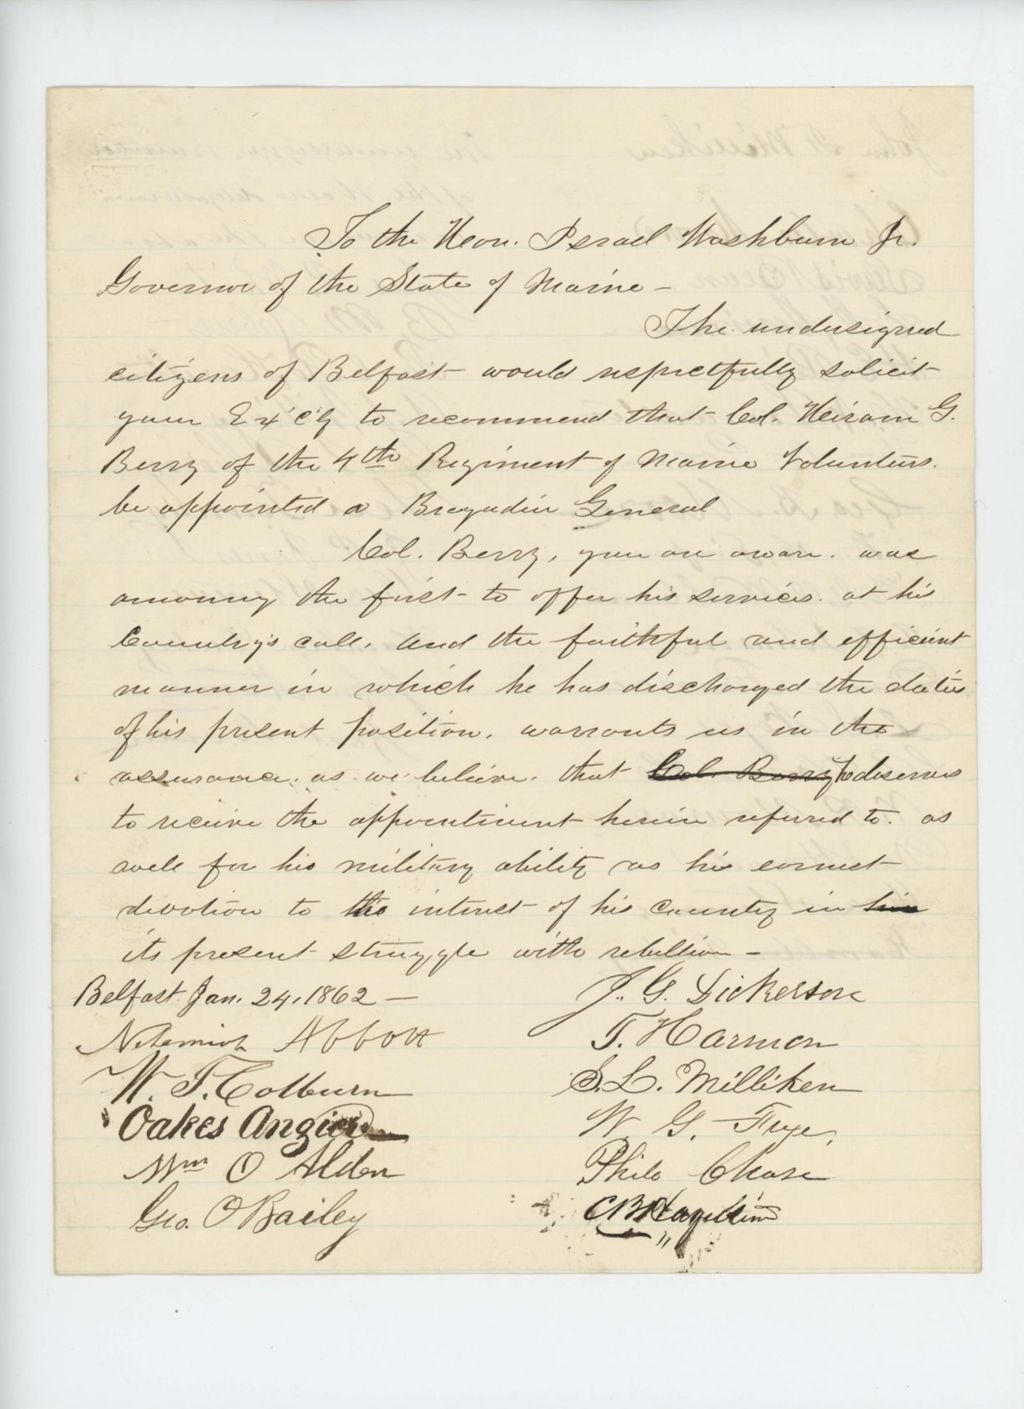 To the Hon. Israel Washburn Jr.
Governor of the State of Maine -
The undersigned
citizens of Belfast would respectfully solicit
your Ex'c'y to recommend that Col. Heiram G.
Berry of the 4th Regiment of Maine Volunteers.
be appointed a Bragadier General
Col. Berry, you are aware. was
among the first to offer his services. at his
Country's call. and the faithful and efficient
manner in which he has discharged the duties
of his present position. warrants us in the
assurance. as we believe. that Col. Berry he deserves
to receive the appointment herein referred to. as
well for his military ability as his earnest
devotion to the interest of his Country in his
its present struggle with rebellion -
Belfast. Jan. 24, 1862 -
J. G. Dickerson
Nehemiah Abbott
T. Harmon
W. T. Colburn
S. L. Milliken
Oakes Angier
W G. Frye.
Wm O Alden
Philo Chase
Geo. O Bailey